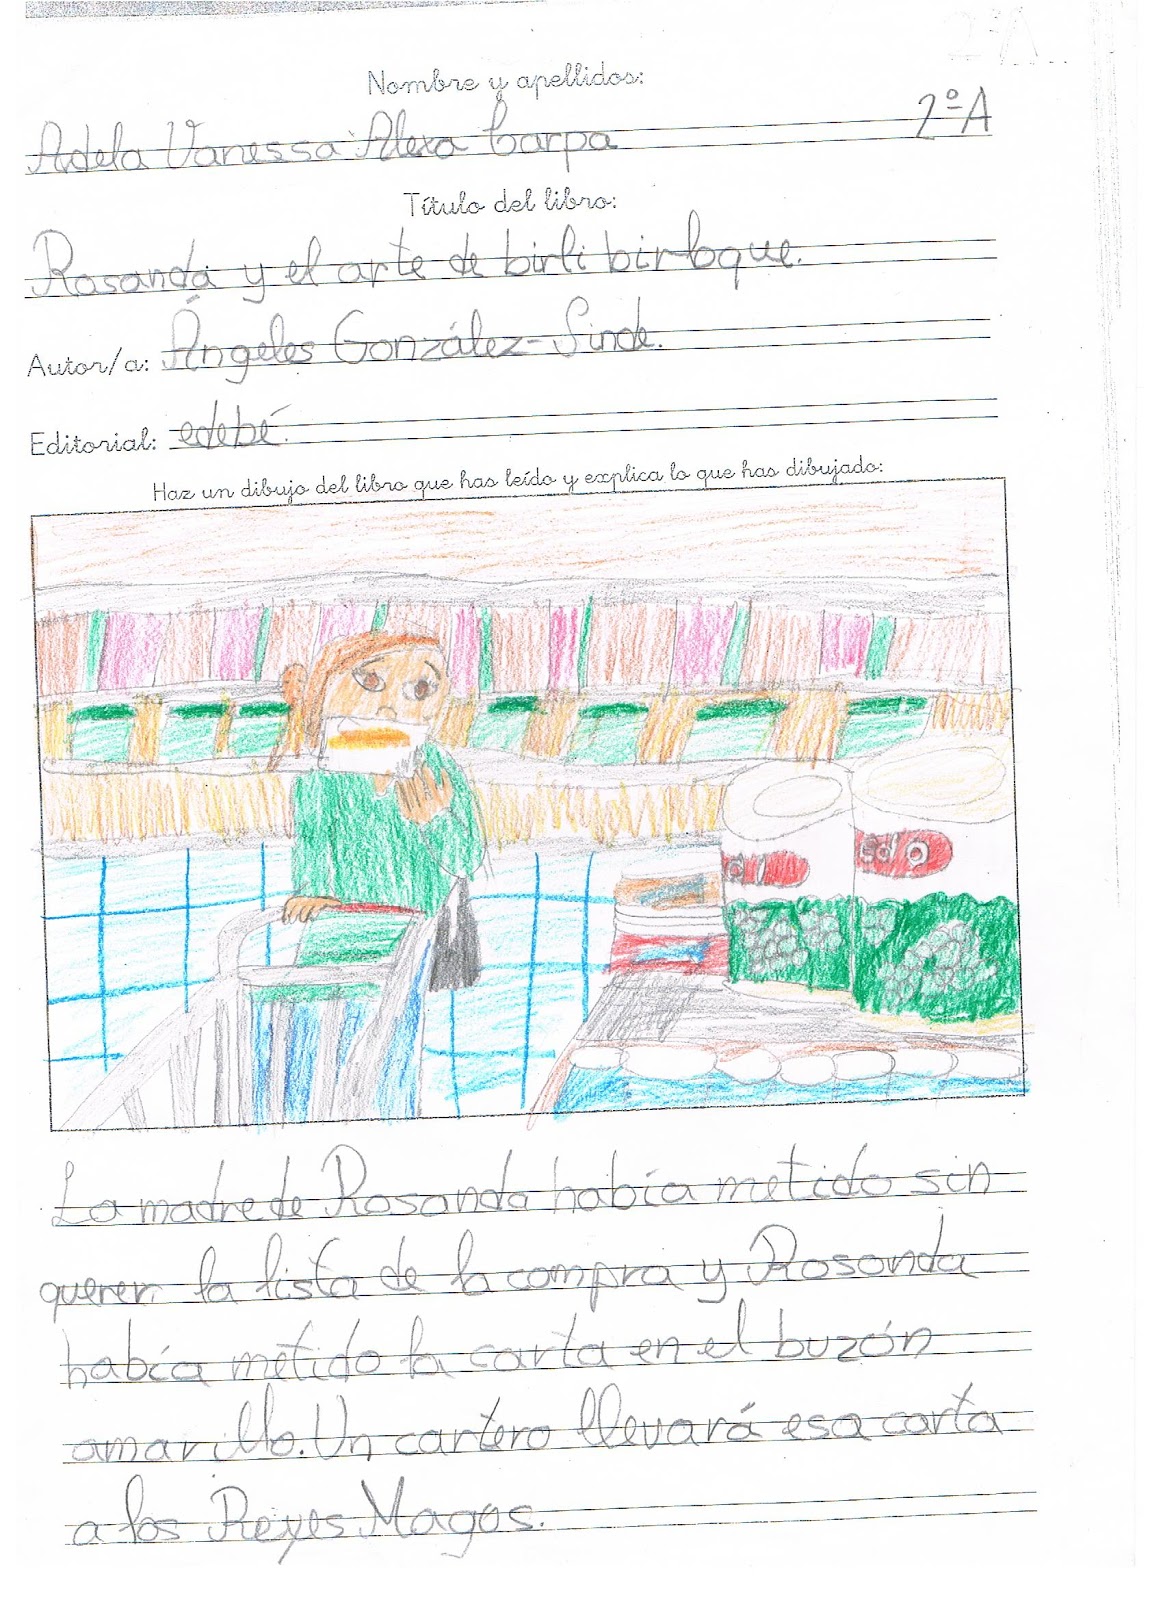 Nombre y apellidos:
Adela Vanessa Alexa Carpa 2ºA
Título del libro:
Rosanda y el arte de birli birloque.
Autor/a: Ángeles González-Sinde.
Editorial: edebé.
Haz un dibujo del libro que has leído y explica lo que has dibujado:
La madre de Rosanda había metido sin
querer la lista de la compra y Rosanda
había metido la carta en el buzón
amarillo. Un cartero llevará esa carta
a los Reyes Magos.